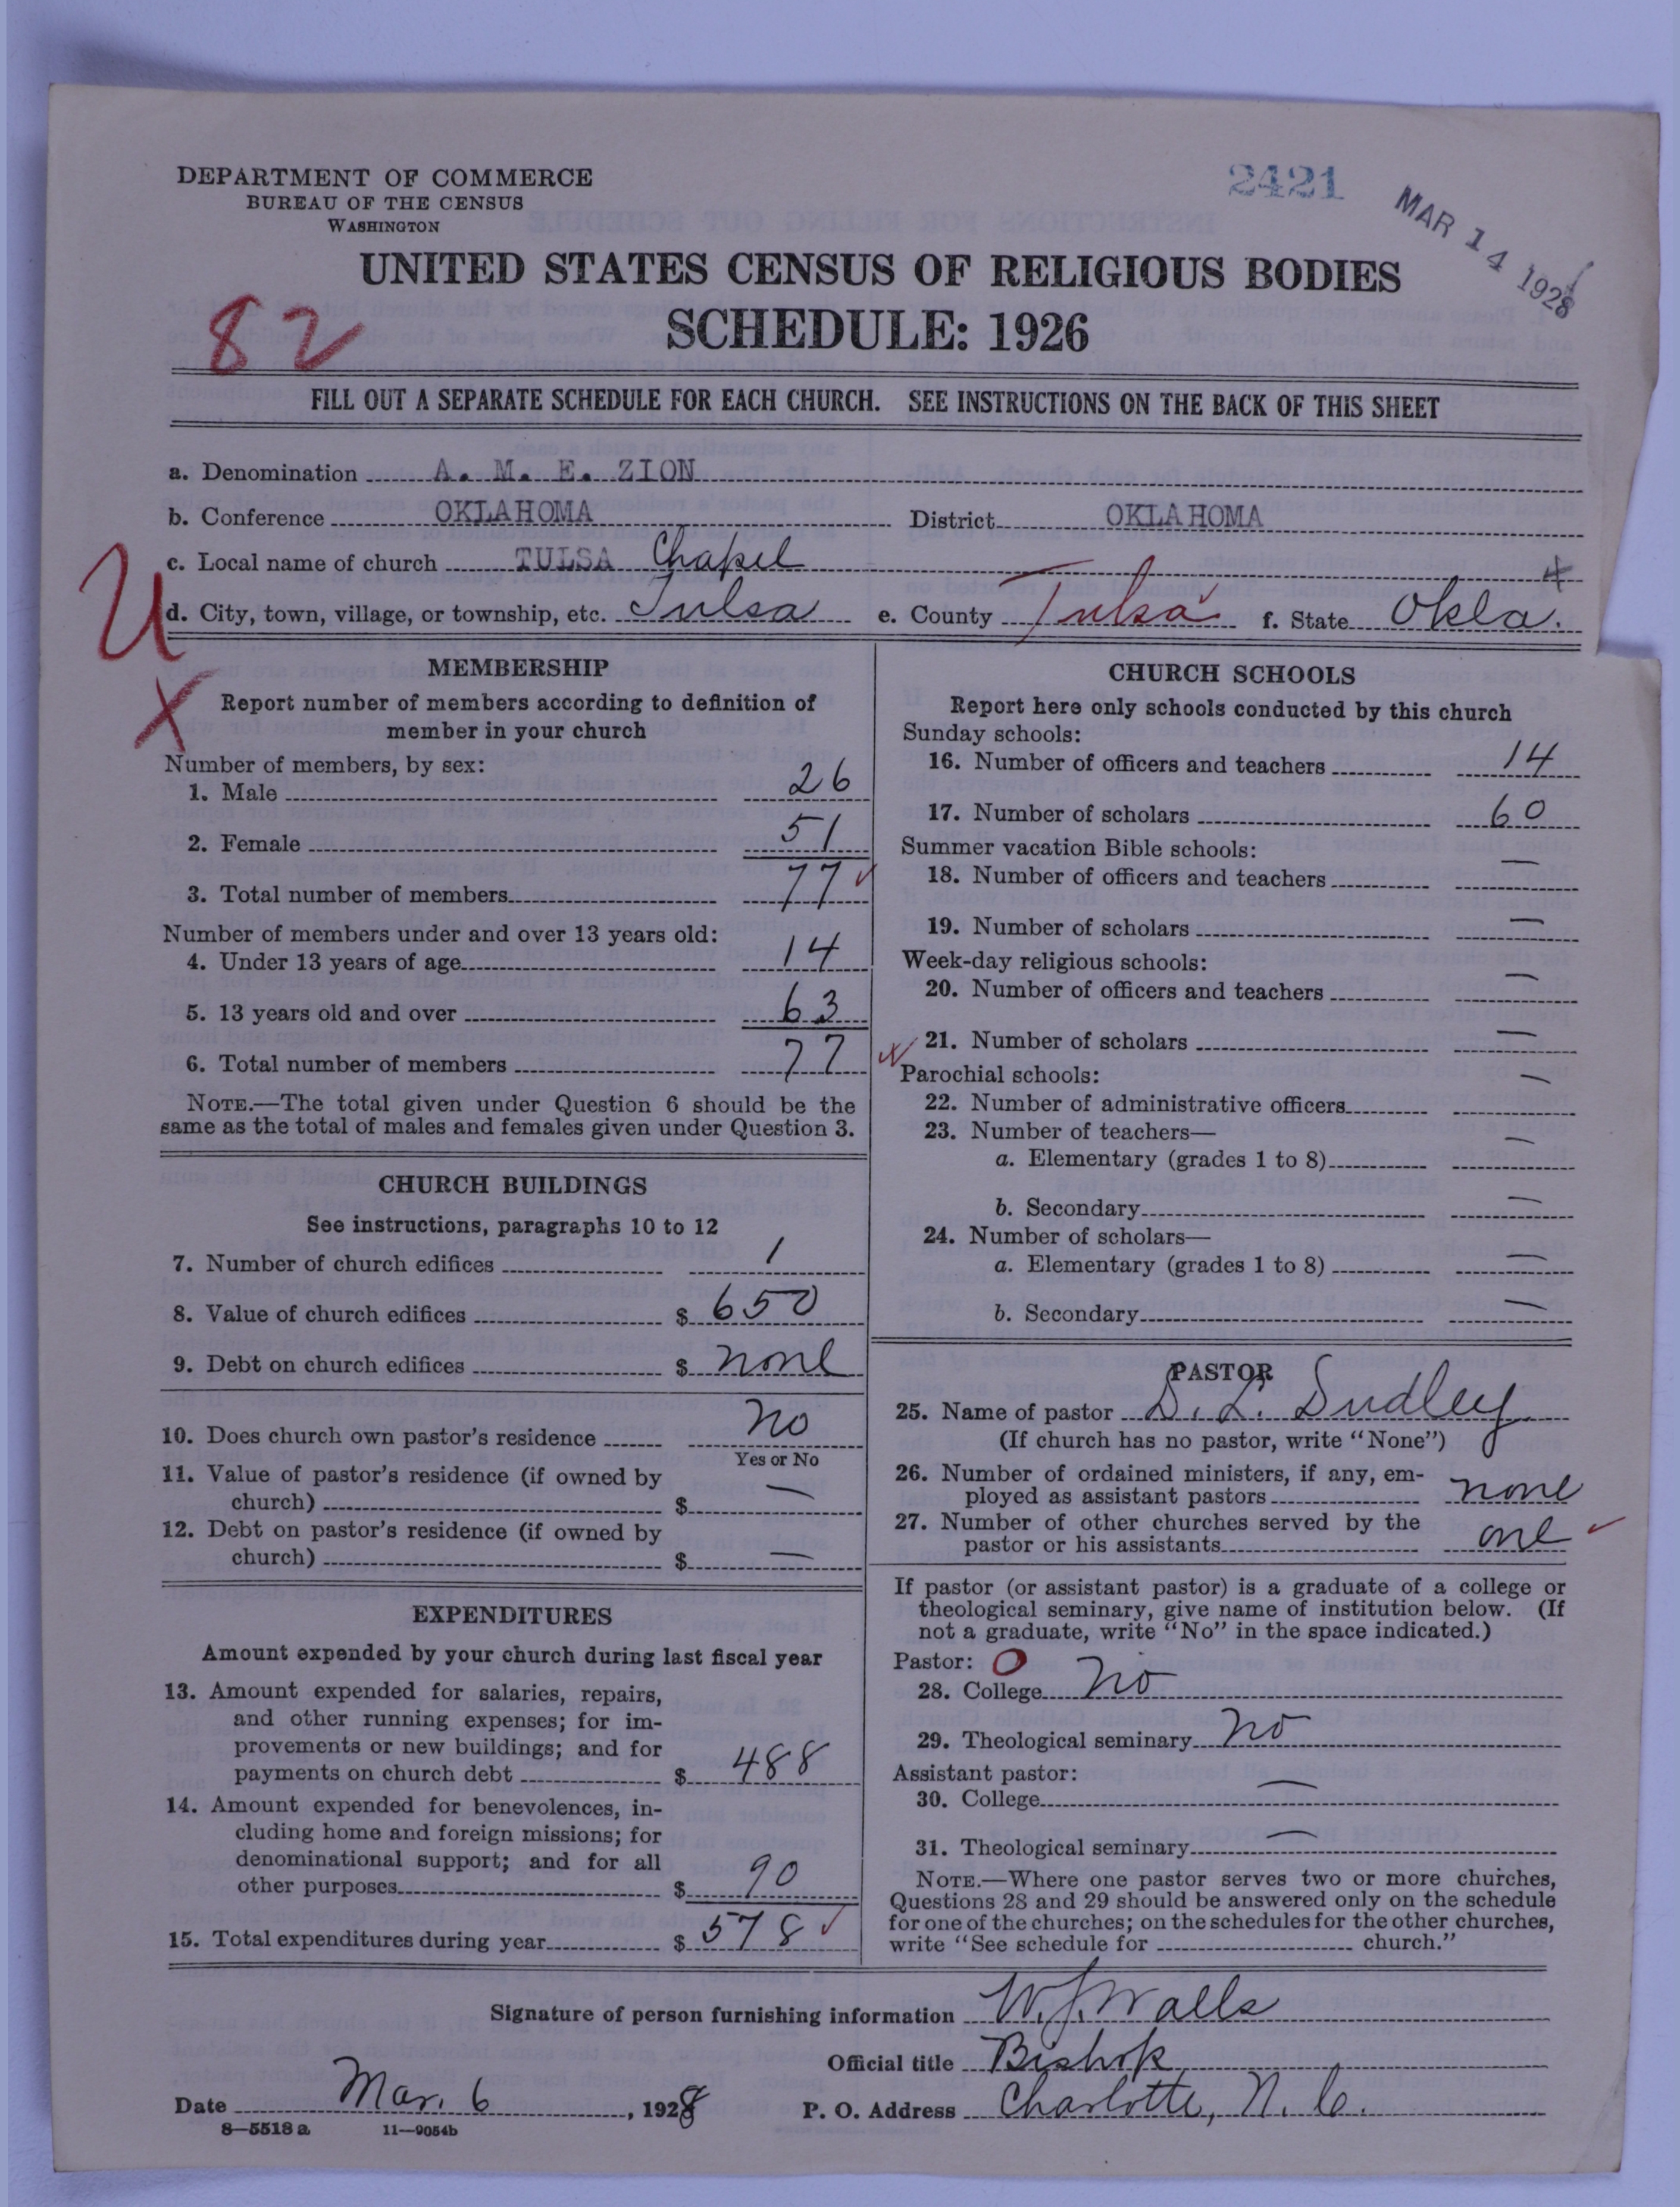 DEPARTMENT OF COMMERCE
BUREAU OF THE CENSUS
WASHINGTON
2421
MAR 14 1928
UNITED STATES CENSUS OF RELIGIOUS BODIES
82
SCHEDULE: 1926
FILL OUT A SEPARATE SCHEDULE FOR EACH CHURCH. SEE INSTRUCTIONS ON THE BACK OF THIS SHEET
a. Denomination A. M. E. ZION
b. Conference OKLAHOMA District OKLAHOMA
c. Local name of church TULSA Chapel
d. City, town, village, or township, etc. Tulsa e. County Tulsa f. State Okla.
U
X
MEMBERSHIP
Report number of members according to definition of
member in your church
Number of members, by sex:
1. Male 26
2. Female 51
3. Total number of members 77
Number of members under and over 13 years old:
4. Under 13 years of age 14
5. 13 years old and over 63
6. Total number of members 77
NOTE.—The total given under Question 6 should be the
same as the total of males and females given under Question 3.
CHURCH BUILDINGS
See instructions, paragraphs 10 to 12
7. Number of church edifices 1
8. Value of church edifices $ 650
9. Debt on church edifices $ none
10. Does church own pastor's residence No
Yes or No
11. Value of pastor's residence (if owned by
church) $ —
12. Debt on pastor's residence (if owned by
church) $ —
EXPENDITURES
Amount expended by your church during last fiscal year
13. Amount expended for salaries, repairs,
and other running expenses; for im-
provements or new buildings; and for
payments on church debt $ 488
14. Amount expended for benevolences, in-
cluding home and foreign missions; for
denominational support; and for all
other purposes $ 90
15. Total expenditures during year $ 578
CHURCH SCHOOLS
Report here only schools conducted by this church
Sunday schools:
16. Number of officers and teachers 14
17. Number of scholars 60
Summer vacation Bible schools:
18. Number of officers and teachers —
19. Number of scholars —
Week-day religious schools:
20. Number of officers and teachers —
21. Number of scholars —
Parochial schools:
22. Number of administrative officers —
23. Number of teachers—
a. Elementary (grades 1 to 8) —
b. Secondary —
24. Number of scholars—
a. Elementary (grades 1 to 8) —
b. Secondary —
PASTOR
25. Name of pastor D. L. Dudley
(If church has no pastor, write "None")
26. Number of ordained ministers, if any, em-
ployed as assistant pastors none
27. Number of other churches served by the
pastor or his assistants one
If pastor (or assistant pastor) is a graduate of a college or
theological seminary, give name of institution below. (If
not a graduate, write "No" in the space indicated.)
Pastor: O
28. College No
29. Theological seminary No
Assistant pastor:
30. College —
31. Theological seminary —
NOTE.—Where one pastor serves two or more churches,
Questions 28 and 29 should be answered only on the schedule
for one of the churches; on the schedules for the other churches,
write "See schedule for church."
Signature of person furnishing information W. J. Walls
Official title Bishop
Date Mar. 6, 1928 P. O. Address Charlotte, N. C.
8—5518 a 11—9054b